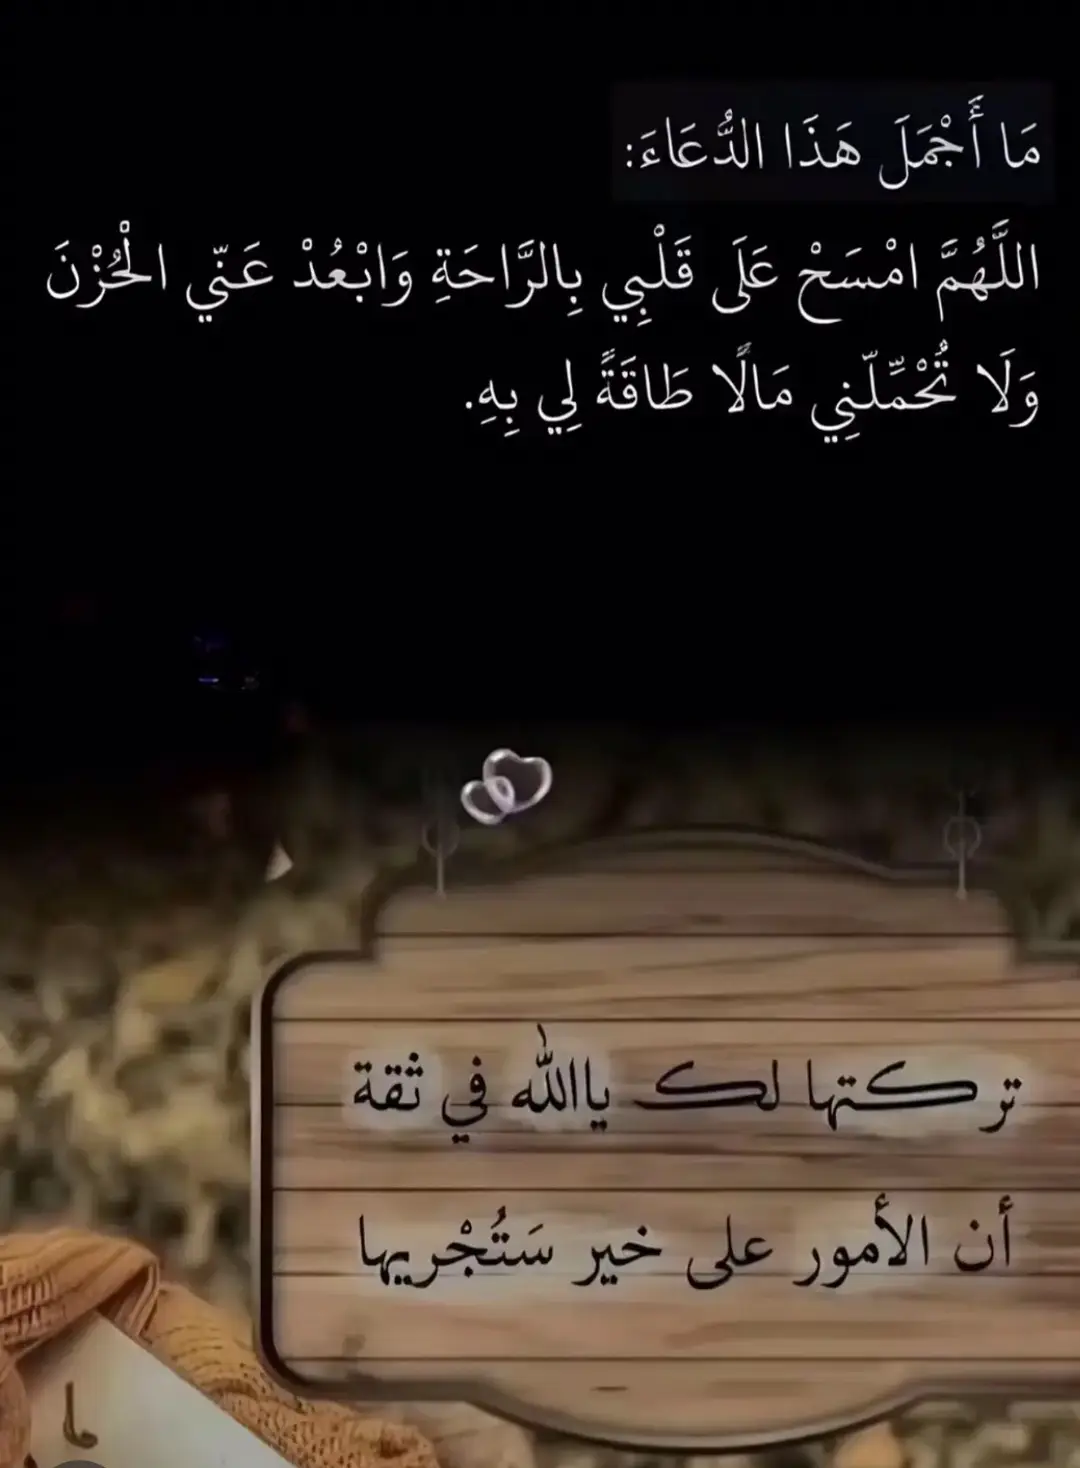 مَا أَجْمَلَ هَذَا الدُّعَاءَ:
اللَّهُمَّ امْسَحْ عَلَى قَلْبِي بِالرَّاحَةِ وَابْعُدْ عَنّي الْحُزْنَ
وَلَا تُحْمِّلّنِي مَالًا طَاقَةً لِي بِهِ.
تركتها لك ياالله في ثقة
أن الأمور على خير سَتُجْريها